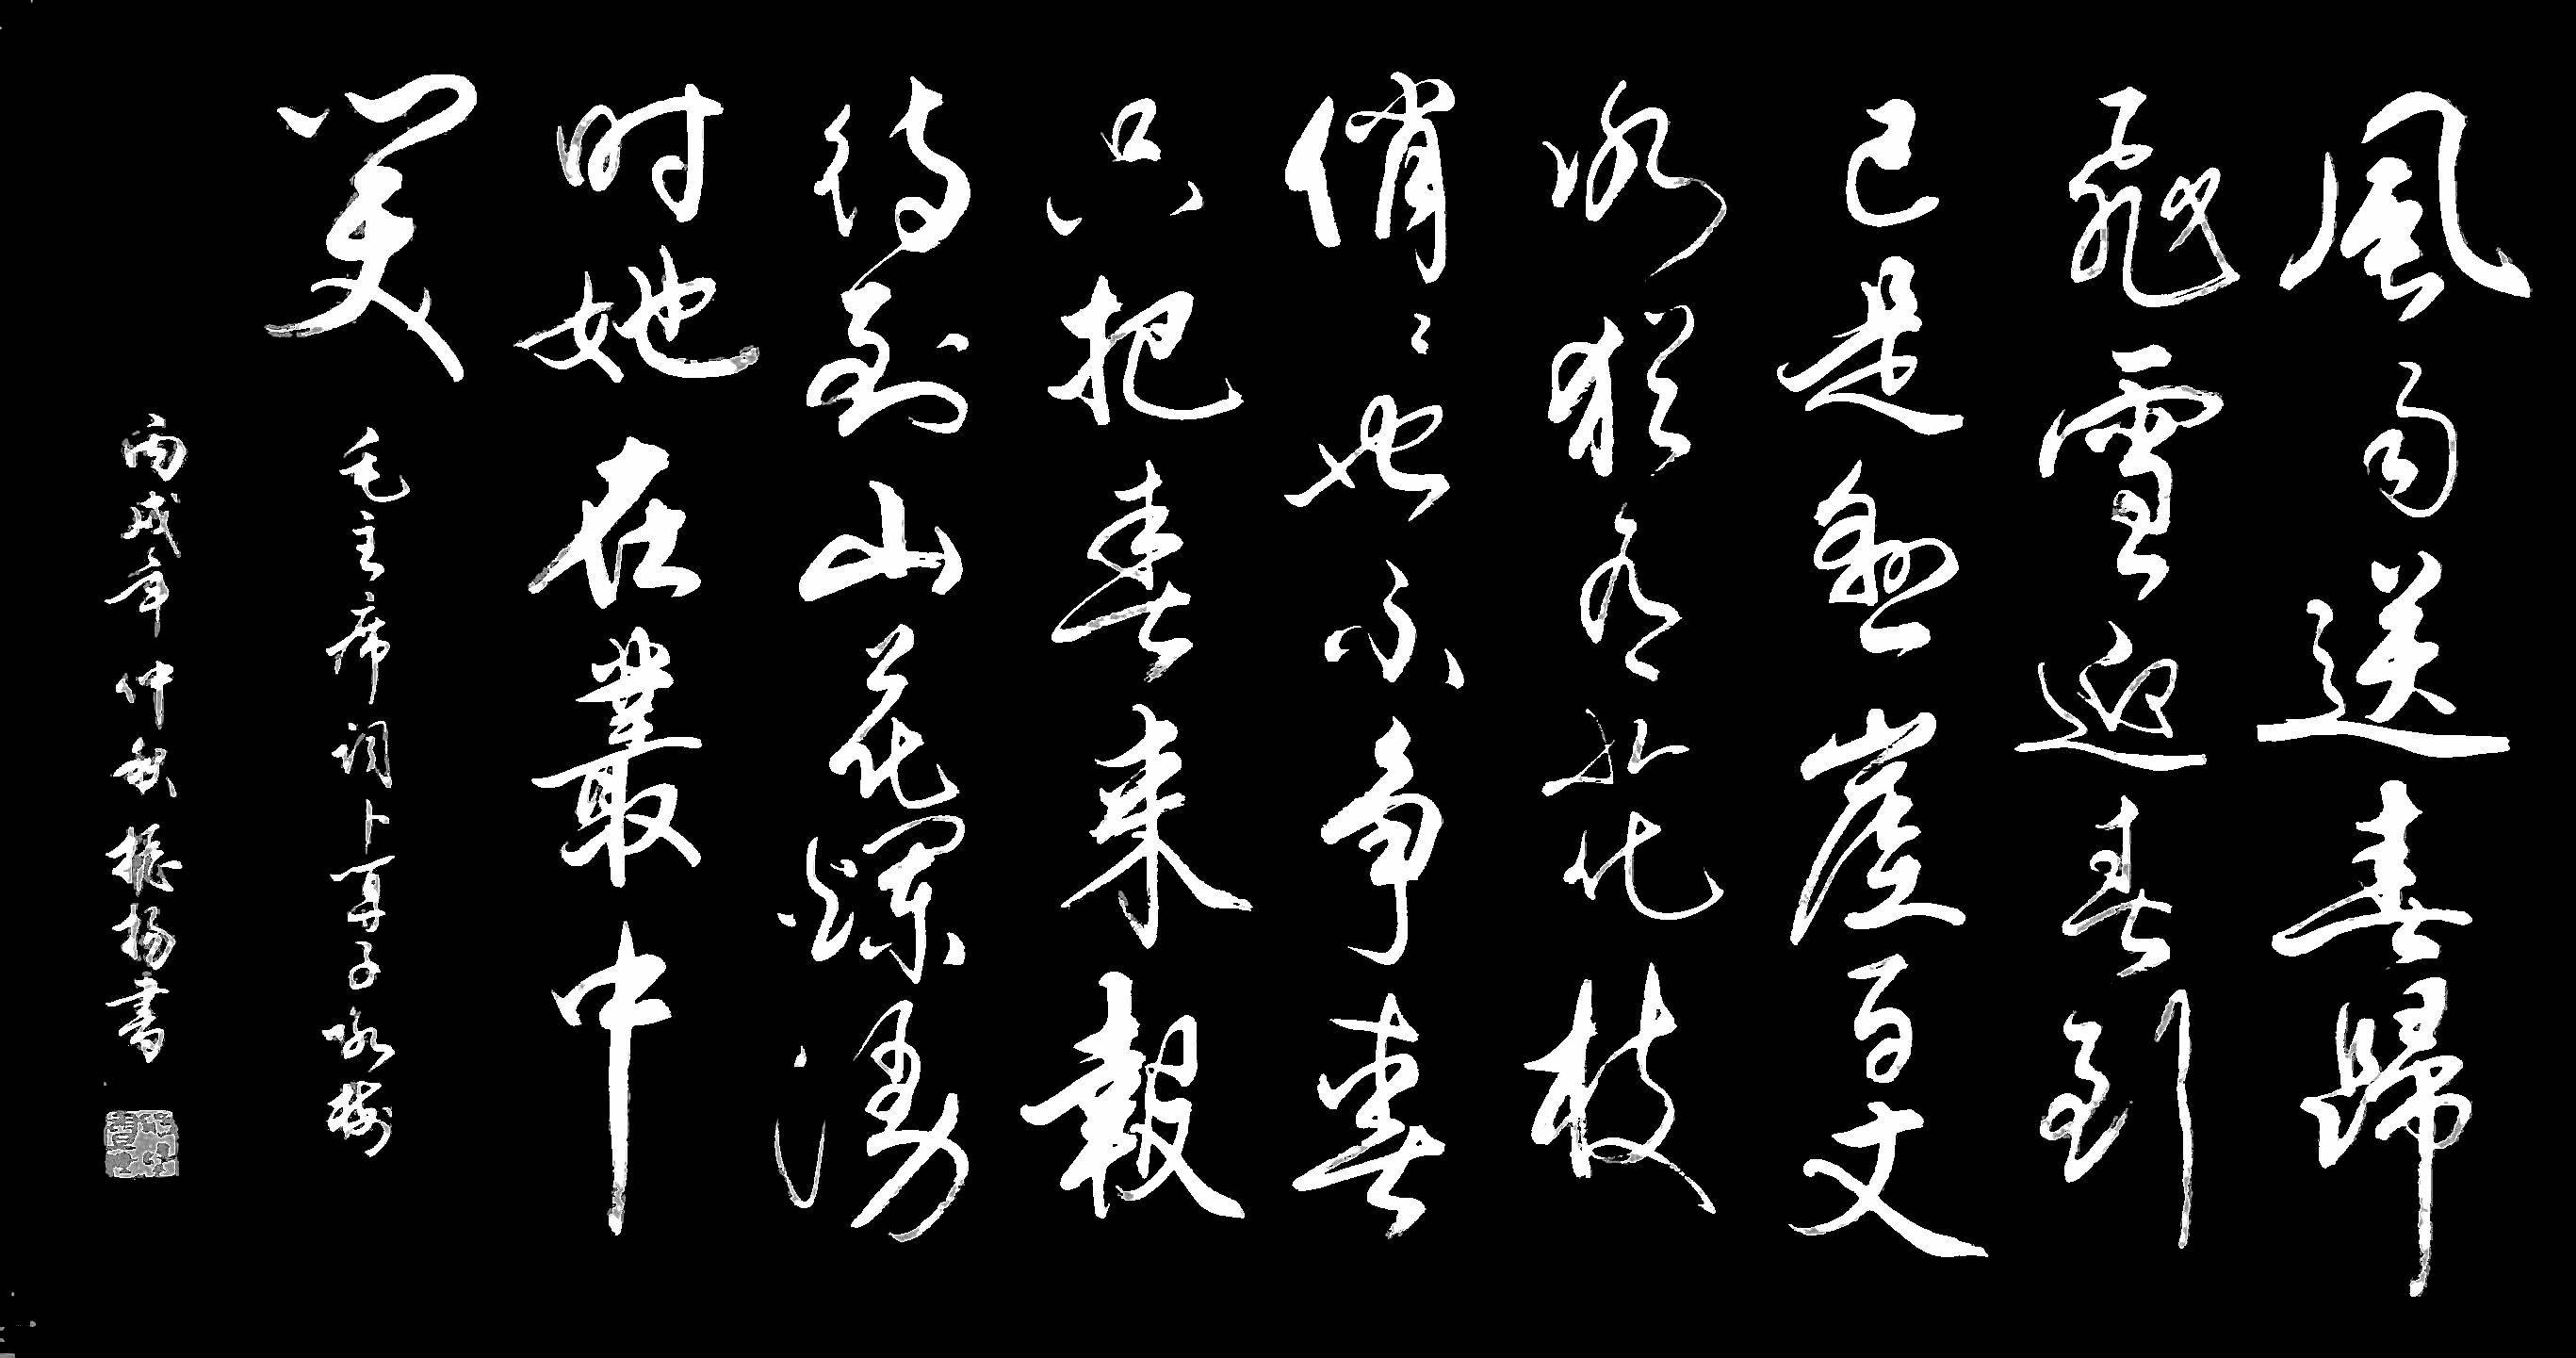 風雨送春歸
飛雪迎春到
已是懸崖百丈
冰猶有花枝
俏々也不争春
只把春来報
待到山花爛漫
时她在叢中
笑
毛主席词卜算子咏梅
丙戌年仲秋 振扬書